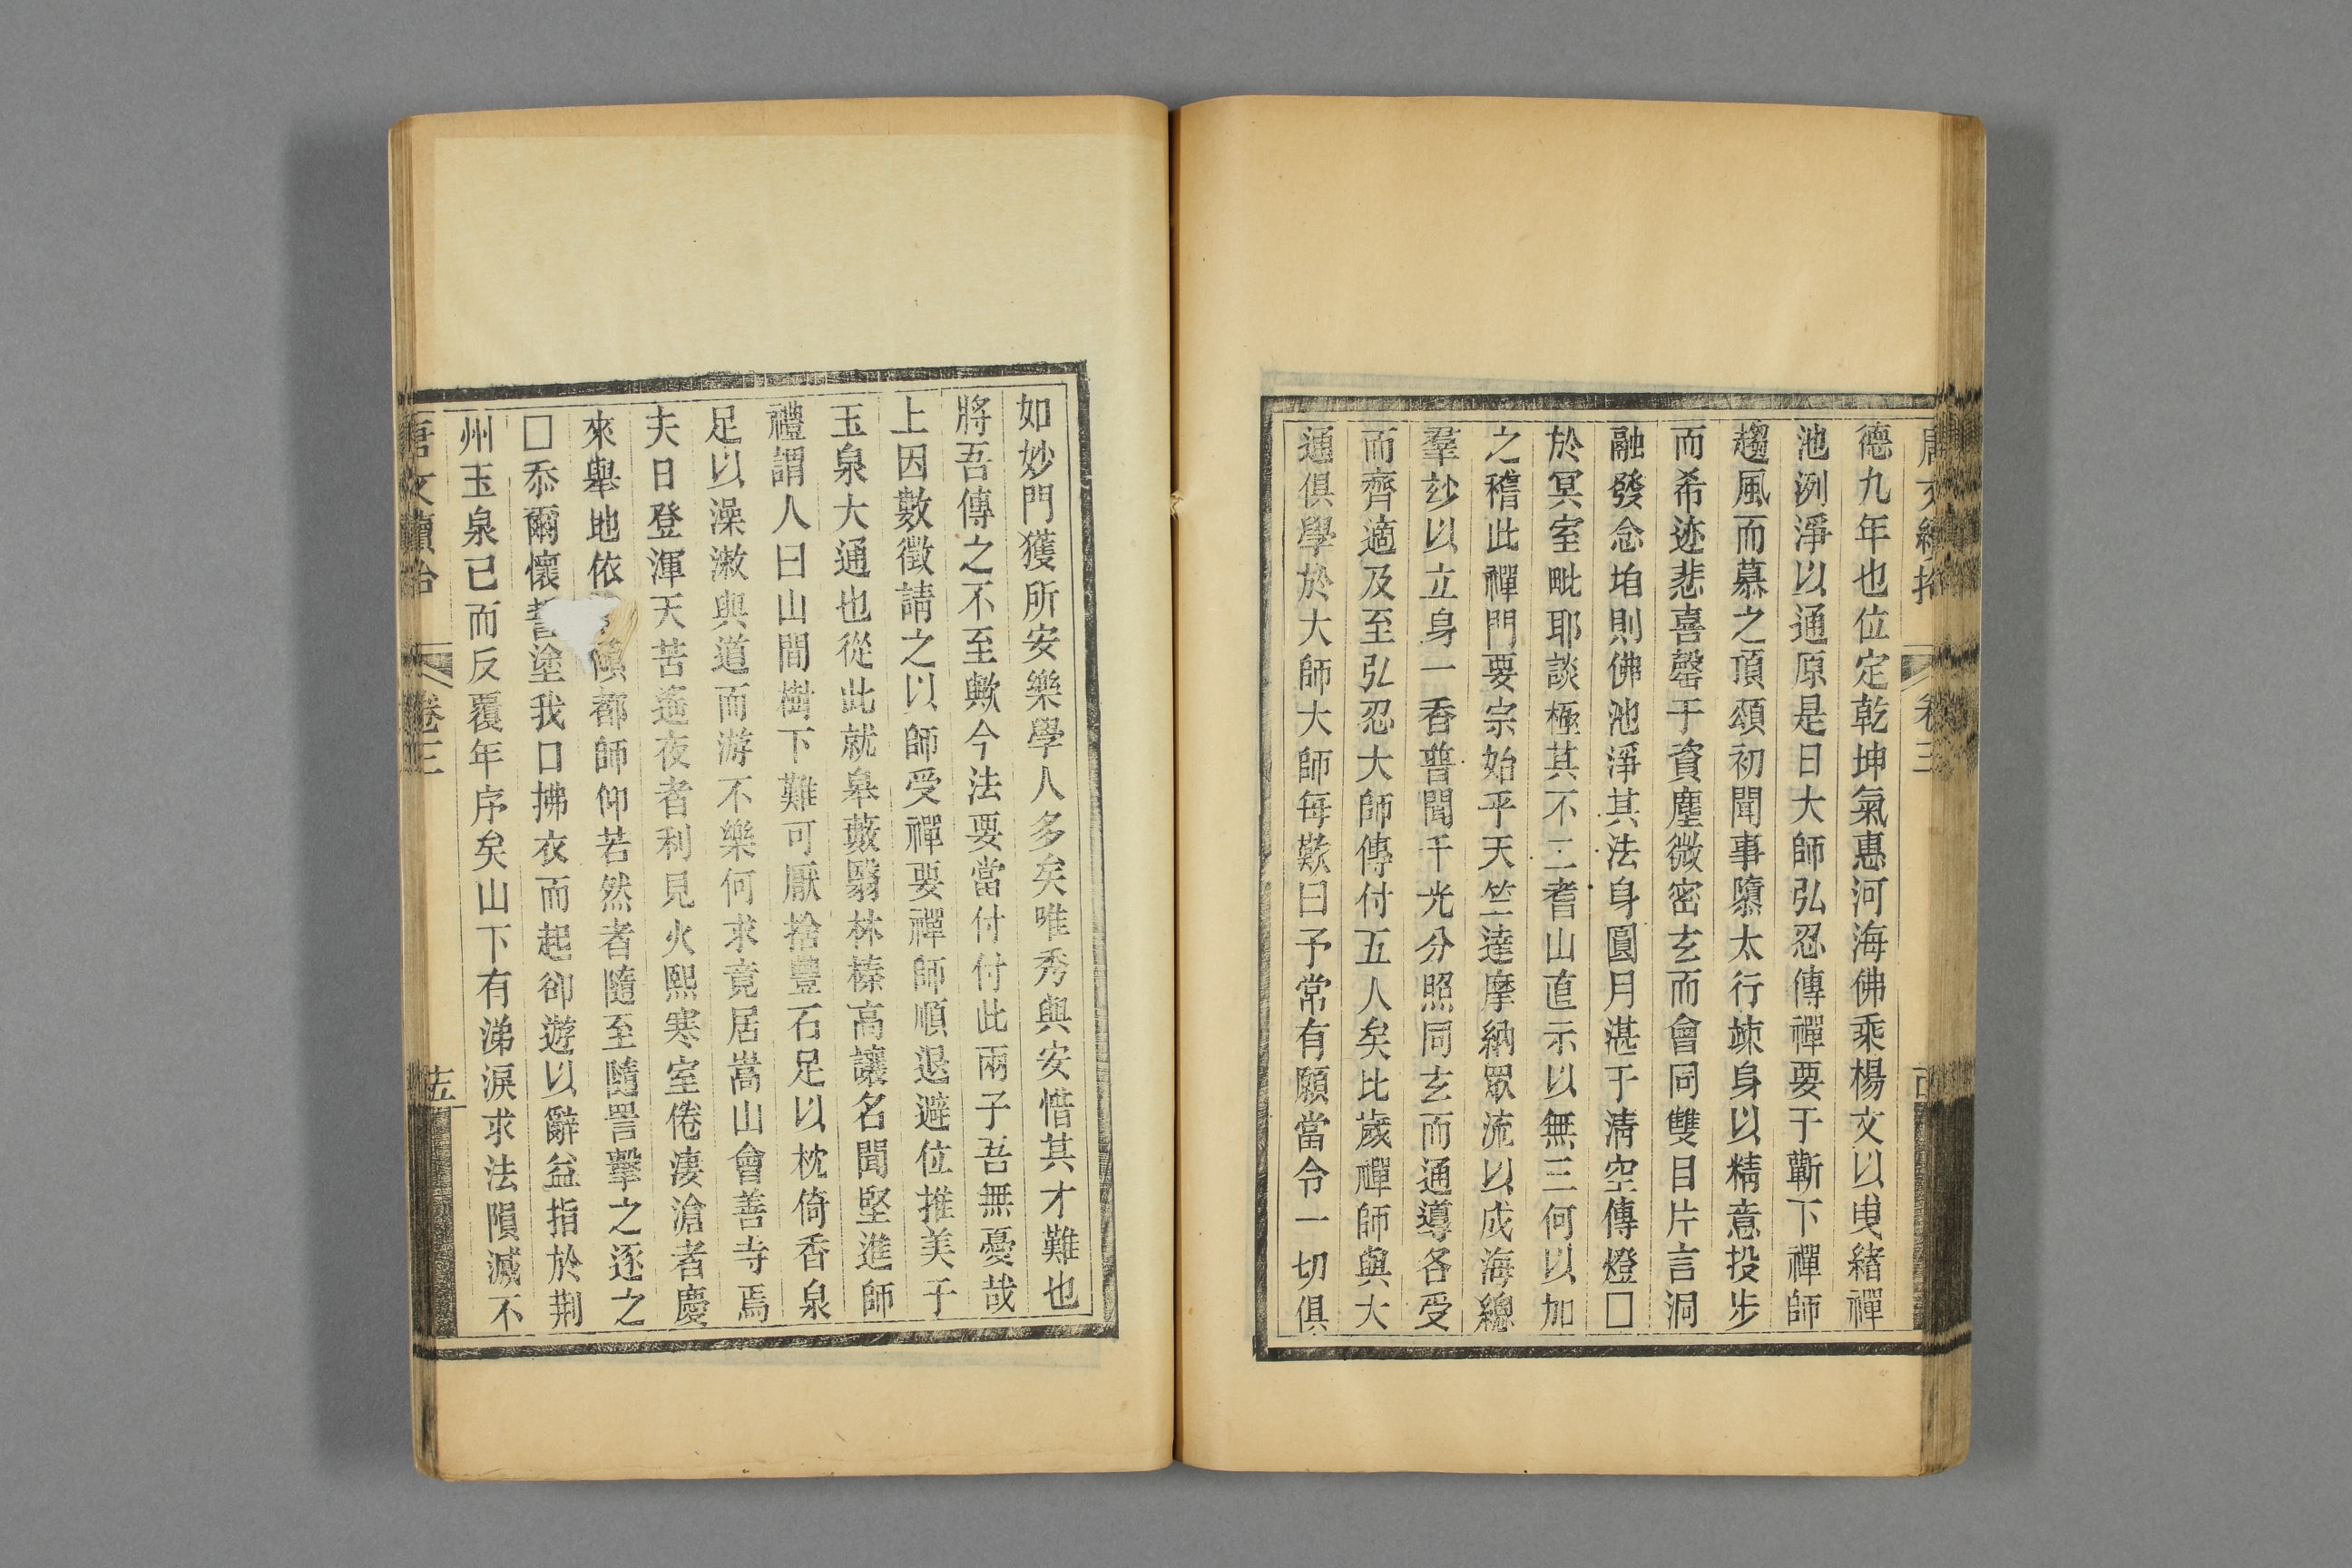 德九年也位定乾坤氣惠河海佛乘楊文以曳緒禪
池洌淨以通原是日大師弘忍傳禪要于蘄下禪師
趨風而慕之頂頌初聞事隳太行竦身以精意投步
而希迹悲喜罄于資塵微密玄而會同雙目片言洞
融發念垍則佛池淨其法身圓月湛于淸空傳燈□
於冥室毗耶談極其不二耆山直示以無三何以加
之稽此禪門要宗始乎天竺達摩納眾流以成海總
羣玅以立身一香普聞千光分照同玄而通導各受
而齊適及至弘忍大師傳付五人矣比歲禪師與大
通俱學於大師大師每歎曰予常有願當令一切俱
如妙門獲所安樂學人多矣唯秀與安惜其才難也
將吾傳之不至歟今法要當付付此兩子吾無憂哉
上因數徵請之以師受禪要禪師順退避位推美于
玉泉大通也從此就皋藪翳林榛高讓名聞堅進師
禮謂人曰山間樹下難可厭捨豐石足以枕倚香泉
足以澡漱與道而游不樂何求竟居嵩山會善寺焉
夫日登渾天苦逾夜者利見火熙寒室倦淒滄者慶
來舉地依傾都師仰若然者隨至隨詈擊之逐之
□忝爾懷塗我口拂衣而起卻遊以辭益指於荆
州玉泉已而反覆年序矣山下有涕淚求法隕滅不
唐文續拾
卷三